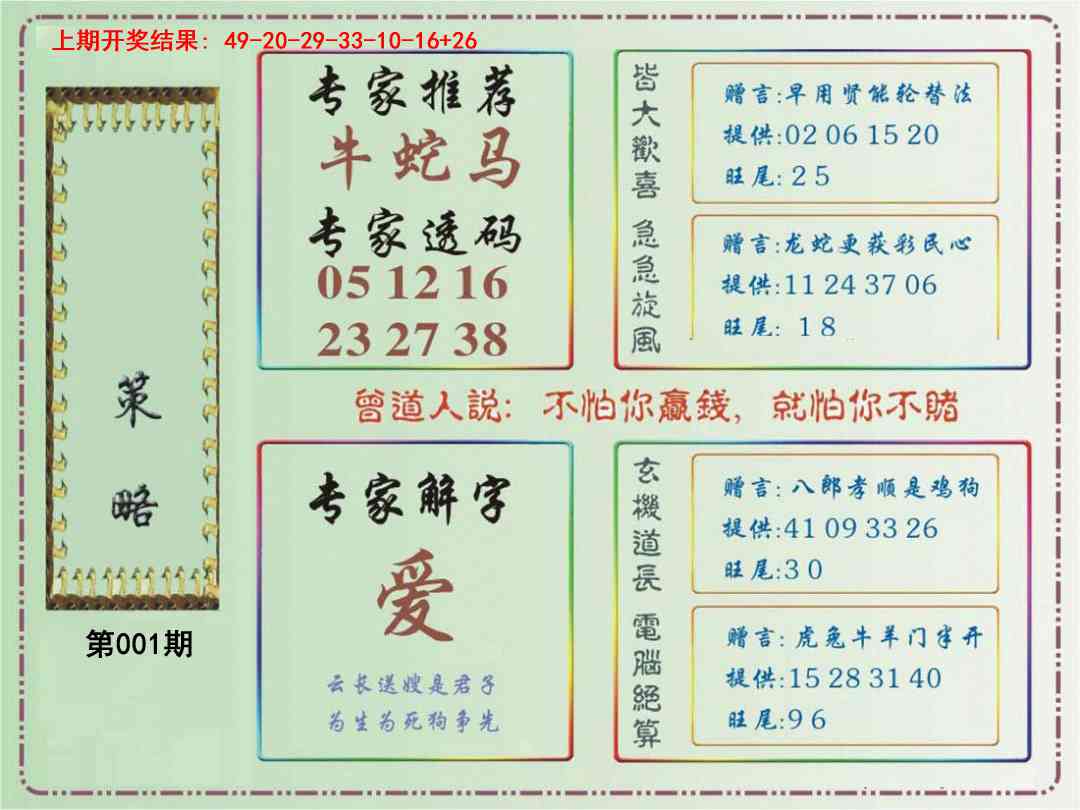 上期开奖结果: 49-20-29-33-10-16+26
策略
第001期
专家推荐
牛蛇马
专家透码
05 12 16
23 27 38
皆大歡喜
赠言:早用贤能轮替法
提供:02 06 15 20
旺尾: 2 5
急急旋風
赠言:龙蛇更获彩民心
提供:11 24 37 06
旺尾: 1 8
曾道人説: 不怕你贏錢, 就怕你不賭
专家解字
爱
云长送嫂是君子
为生为死狗争先
玄機道長
赠言: 八郎孝顺是鸡狗
提供:41 09 33 26
旺尾:3 0
電腦絕算
赠言: 虎兔牛羊门半开
提供:15 28 31 40
旺尾:9 6